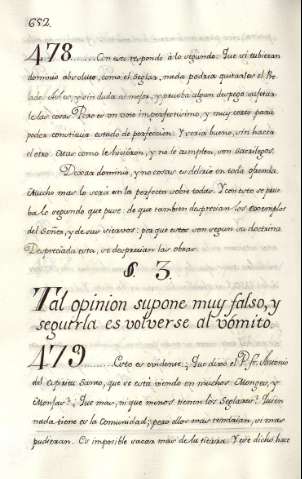 652.
478. Con eso responde à lo segundo: Que si tubieran
dominio absoluto, como el Seglar, nada podria quitarles el Pre
lado. Así es, y sin duda
le das cosas. Pero es un voto imperfectisimo, y muy
podra constituir estado de perfeccion. Y seria bueno, sin hacer
el otro. Otras como le hicieron, y no le cumplen, son sacrilegos.
Dexar dominio, y no cosas es delirio en toda
Mucho mas lo será en la perfecta sobre todas. Y con esto se prue
ba lo segundo que puse: de que tambien desprecian los exemplos
del Señor, y de sus siervos: porque estos son segun su doctrina
Despreciada esta, se desprecian las obras.
§. 3.
Tal opinion supone muy falso, y
seguirla es volverse al vómito.
479. Esto es evidente. Que dixo el P. fr. Antonio
del Espiritu Santo, que se está viendo en muchos Monges, y
Monjas? Que mas, ni que menos tienen los Seglares? Quien
nada tiene es la Comunidad; pero ellos mas tendrian, si mas
pudieran. Es imposible sacar mas de su tierra. Y este dicho hace